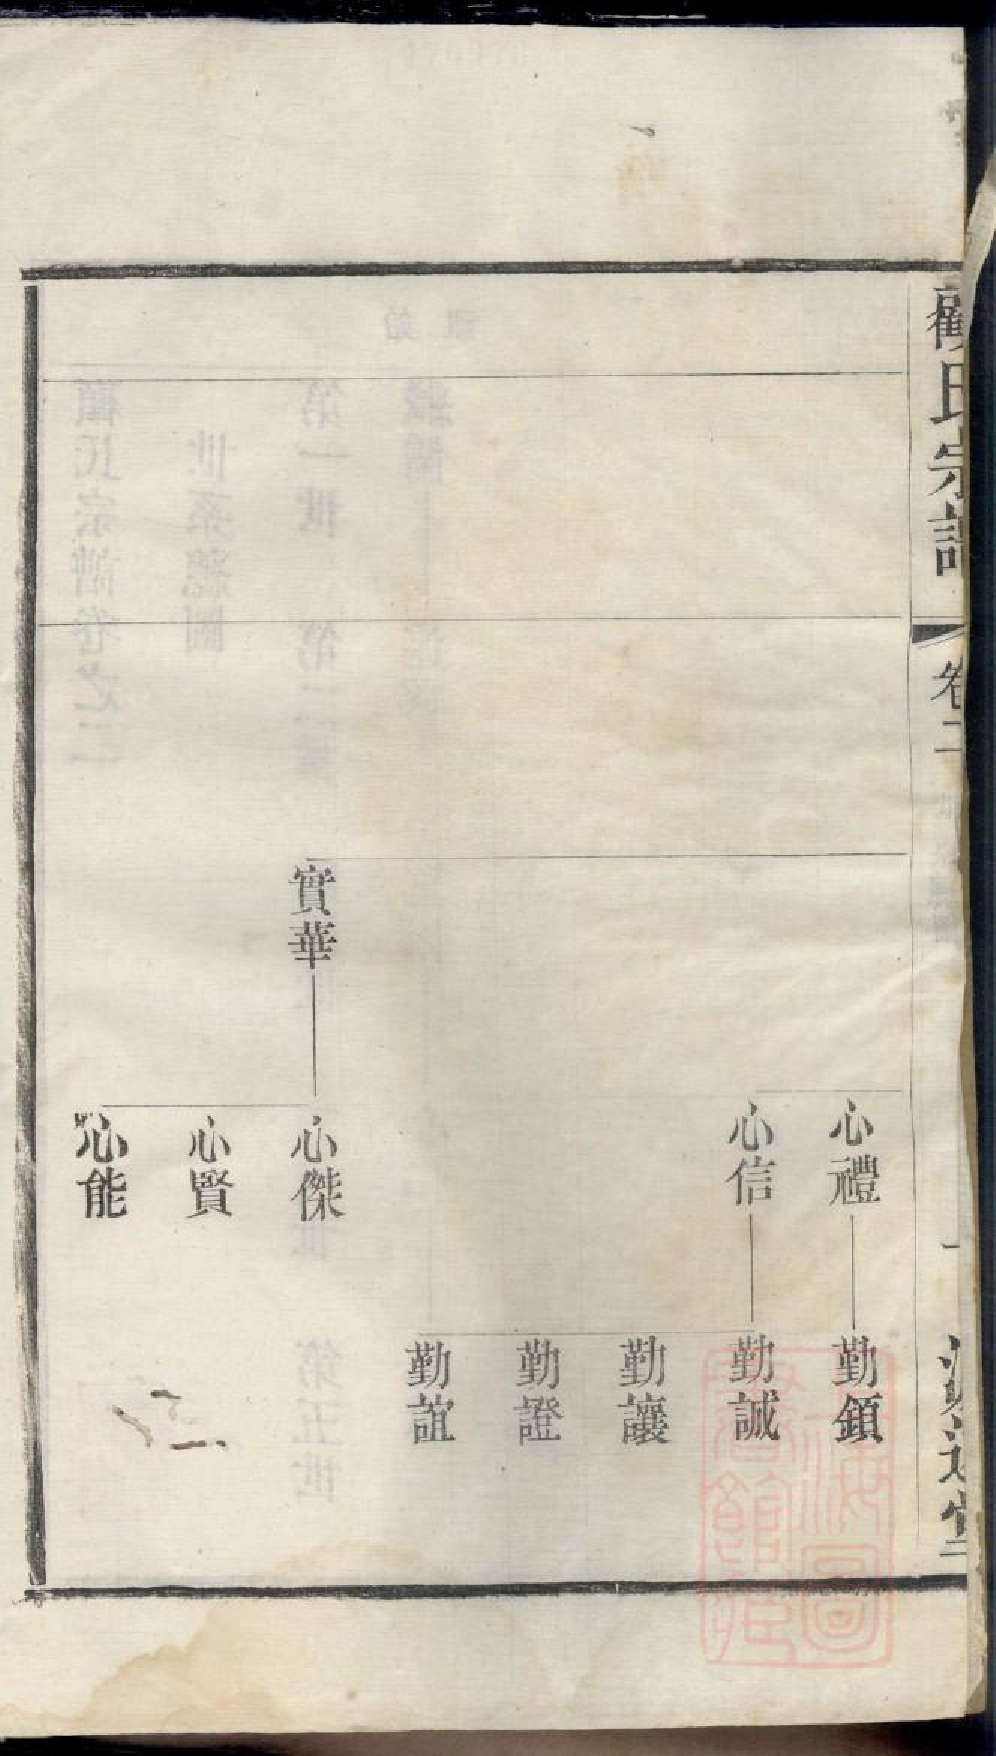 顧氏宗譜
卷二
一
心禮
勤鎖
心信
勤誠
勤讓
勤證
勤誼
實華
心傑
心賢
心能